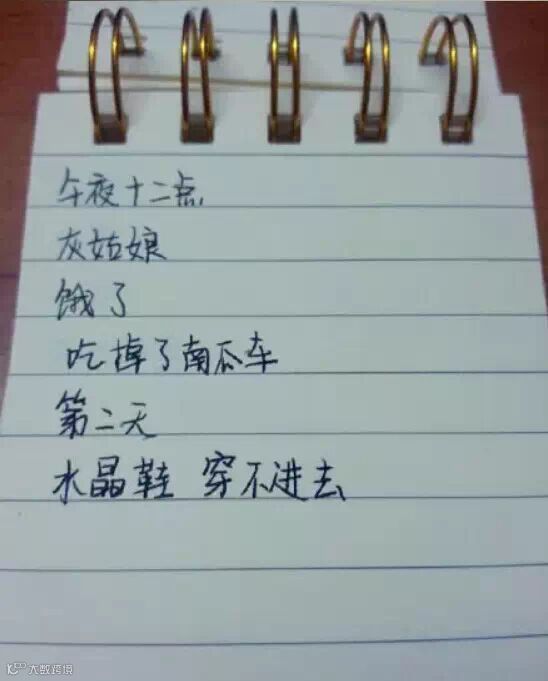 午夜十二点
灰姑娘
饿了
吃掉了南瓜车
第二天
水晶鞋 穿不进去
大数跨境